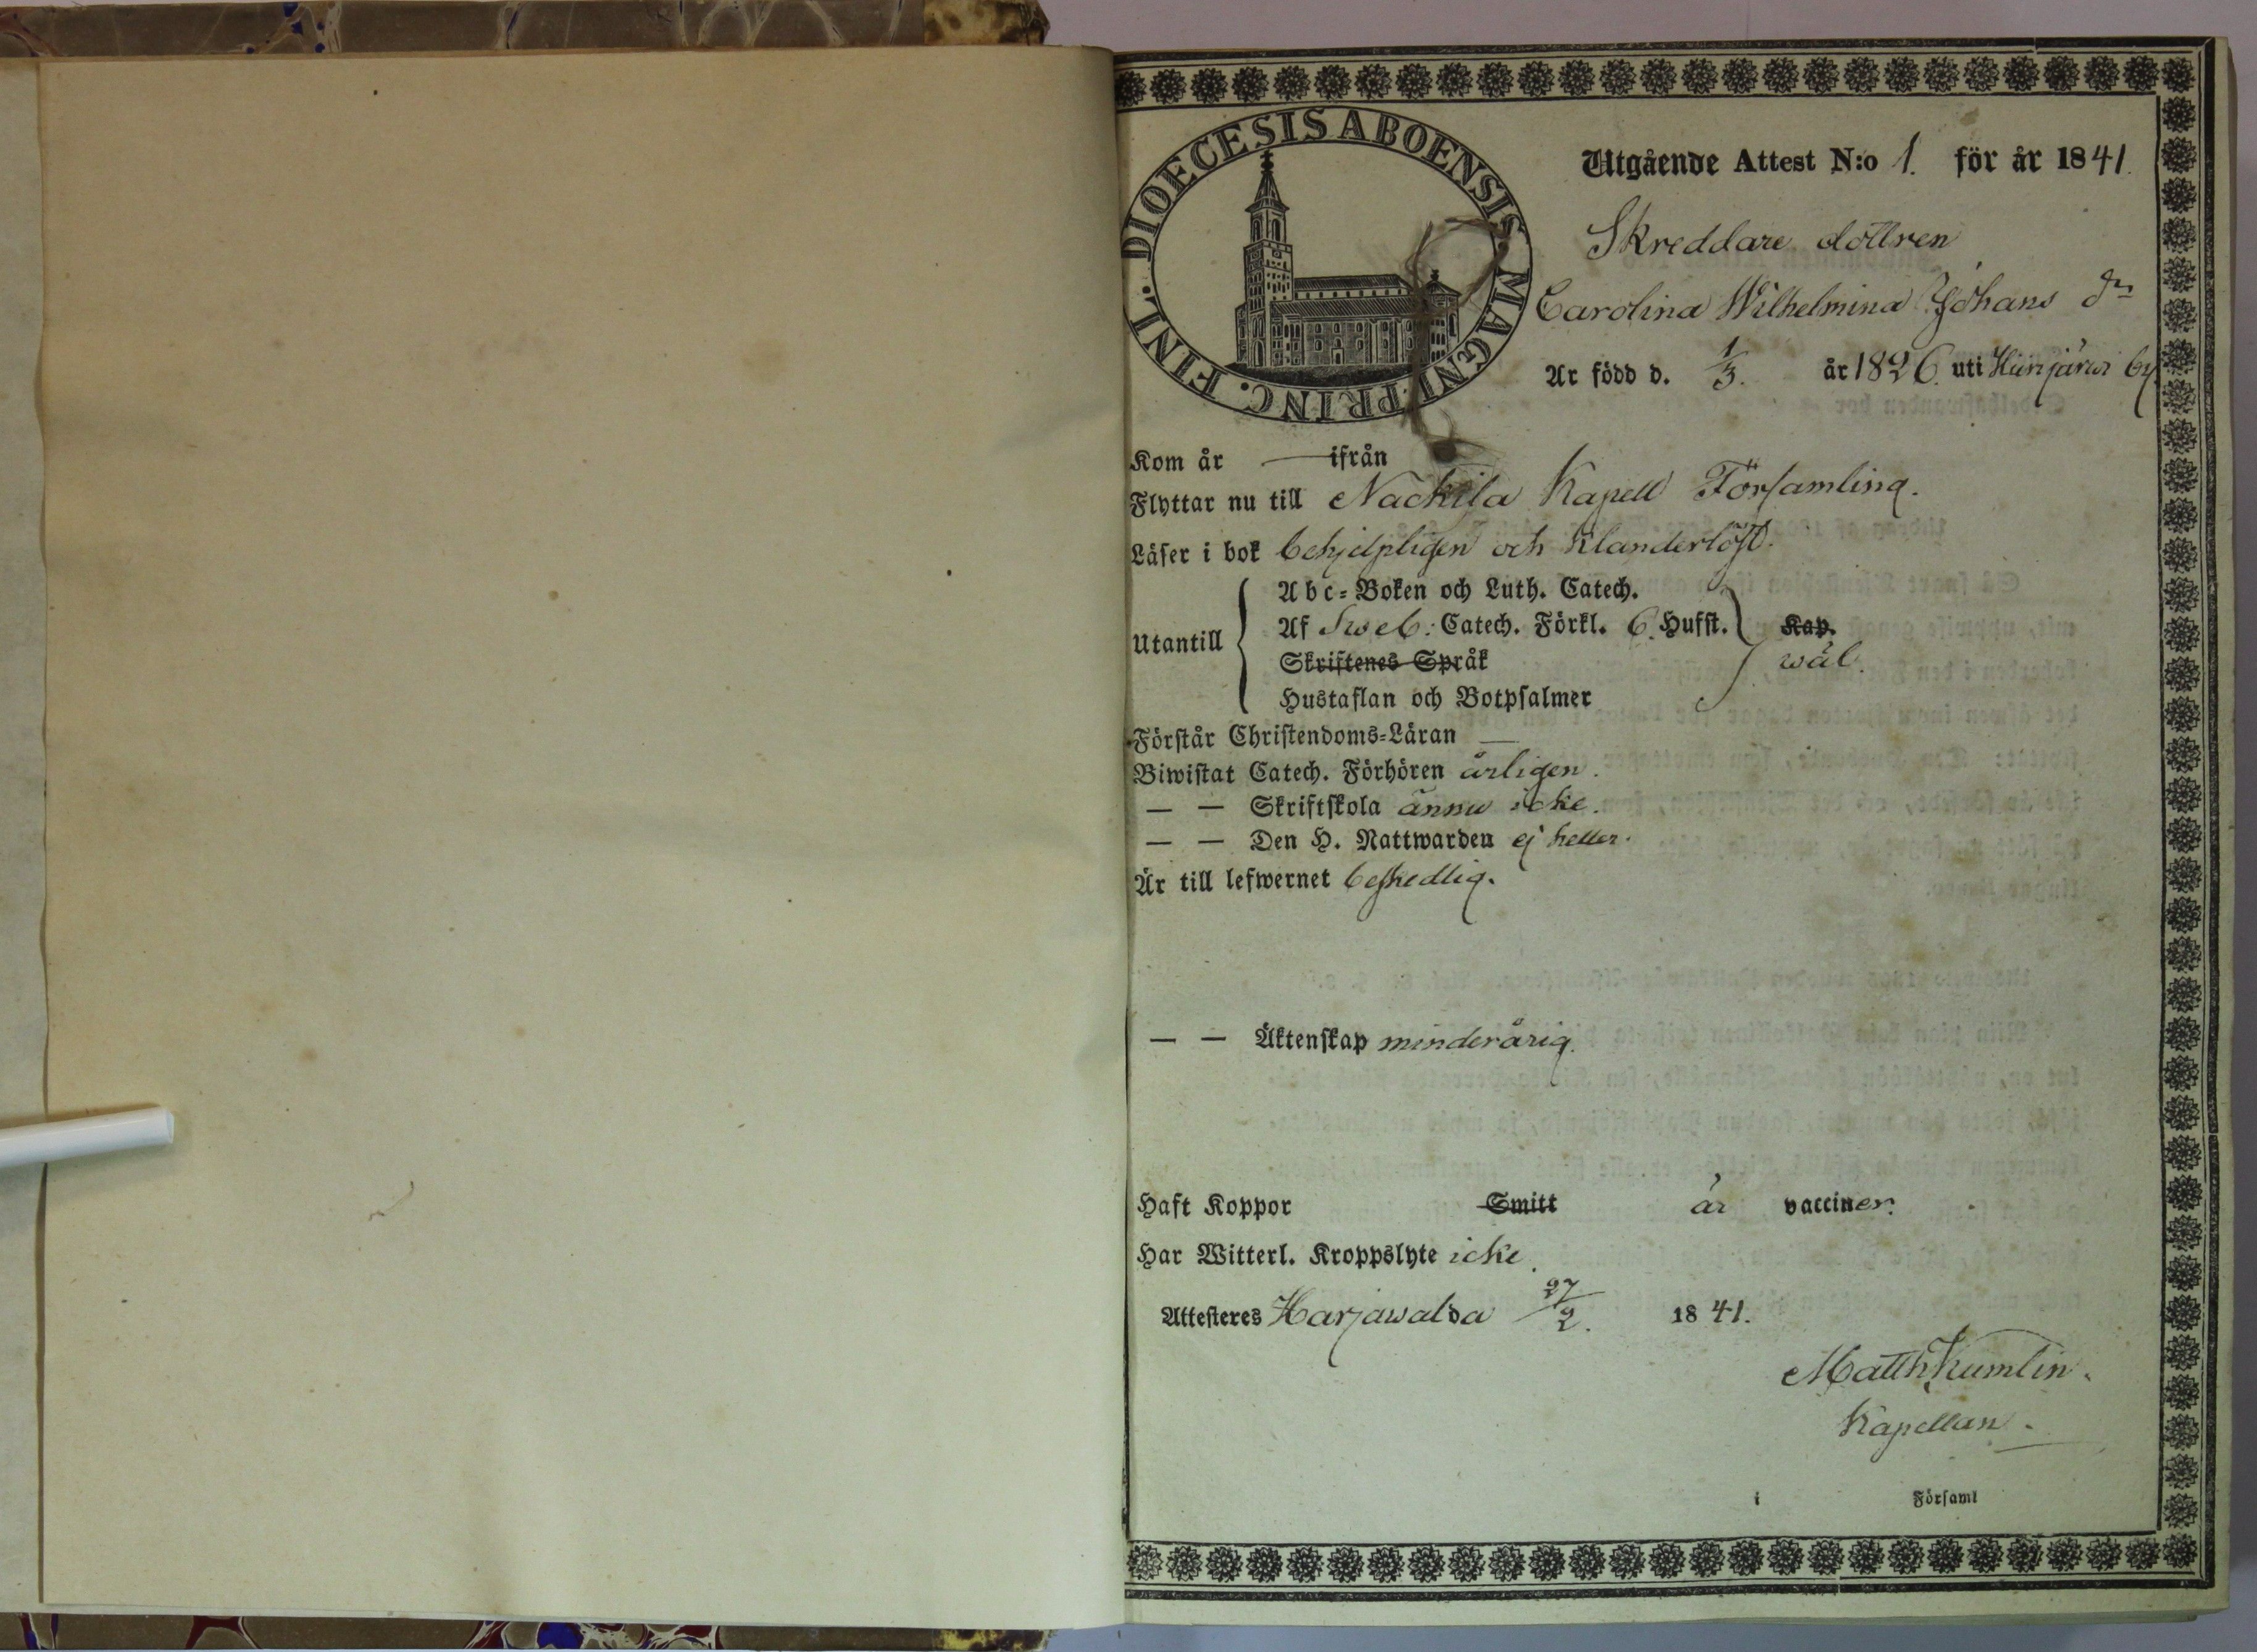 DIOECESIS ABOENSIS MAGNI PRINC. FINL.
Utgående Attest N:o 1. för år 1841.
Skreddare dottren
Carolina Wilhelmina Johans dr
Är född d. 1/3. år 1826. uti Hiirijärvi by
Kom år — ifrån
Flyttar nu till Nackila Kapell Församling.
Läser i bok behjelpligen och klanderlöst.
Utantill
Abc-Boken och Luth. Catech.
Af Sveb: Catech. Förkl. 6. Hufst. Kap.
Skriftenes Språk wäl.
Hustaflan och Botpsalmer
Förstår Christendoms-Läran —
Biwistat Catech. Förhören årligen.
— — Skriftskola ännu icke.
— — Den H. Nattwarden ej heller.
Är till lefwernet beskedlig.
— — Äktenskap minderårig.
Haft Koppor Smitt är vacciner.
Har Witterl. Kroppslyte icke.
Attesteres Harjawalda 27/2. 1841.
Matth Kumlin.
Kapellan.
i Församl